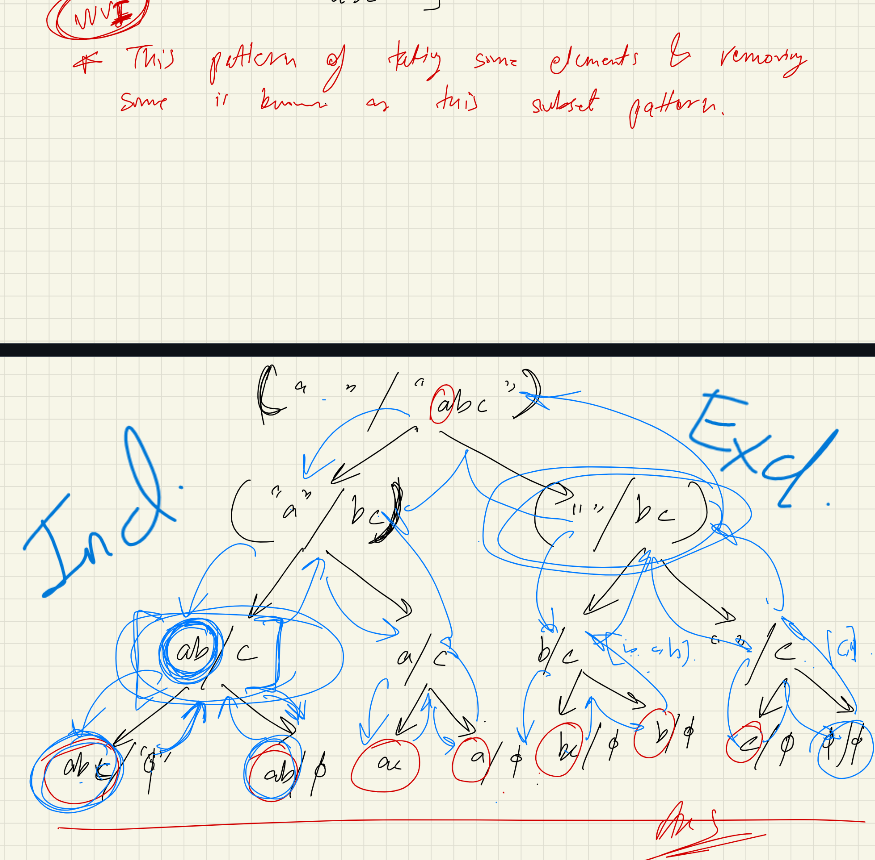 VVVI
* This pattern of taking some elements & removing
some is known as this subset pattern.
(" " / "abc")
Incl.
Excl.
("a" / bc)
("" / bc)
ab / c
a / c
b/c
" " / c
abc / "ϕ"
ab / ϕ
ac
a / ϕ
bc / ϕ
b / ϕ
c / ϕ
ϕ / ϕ
Ans